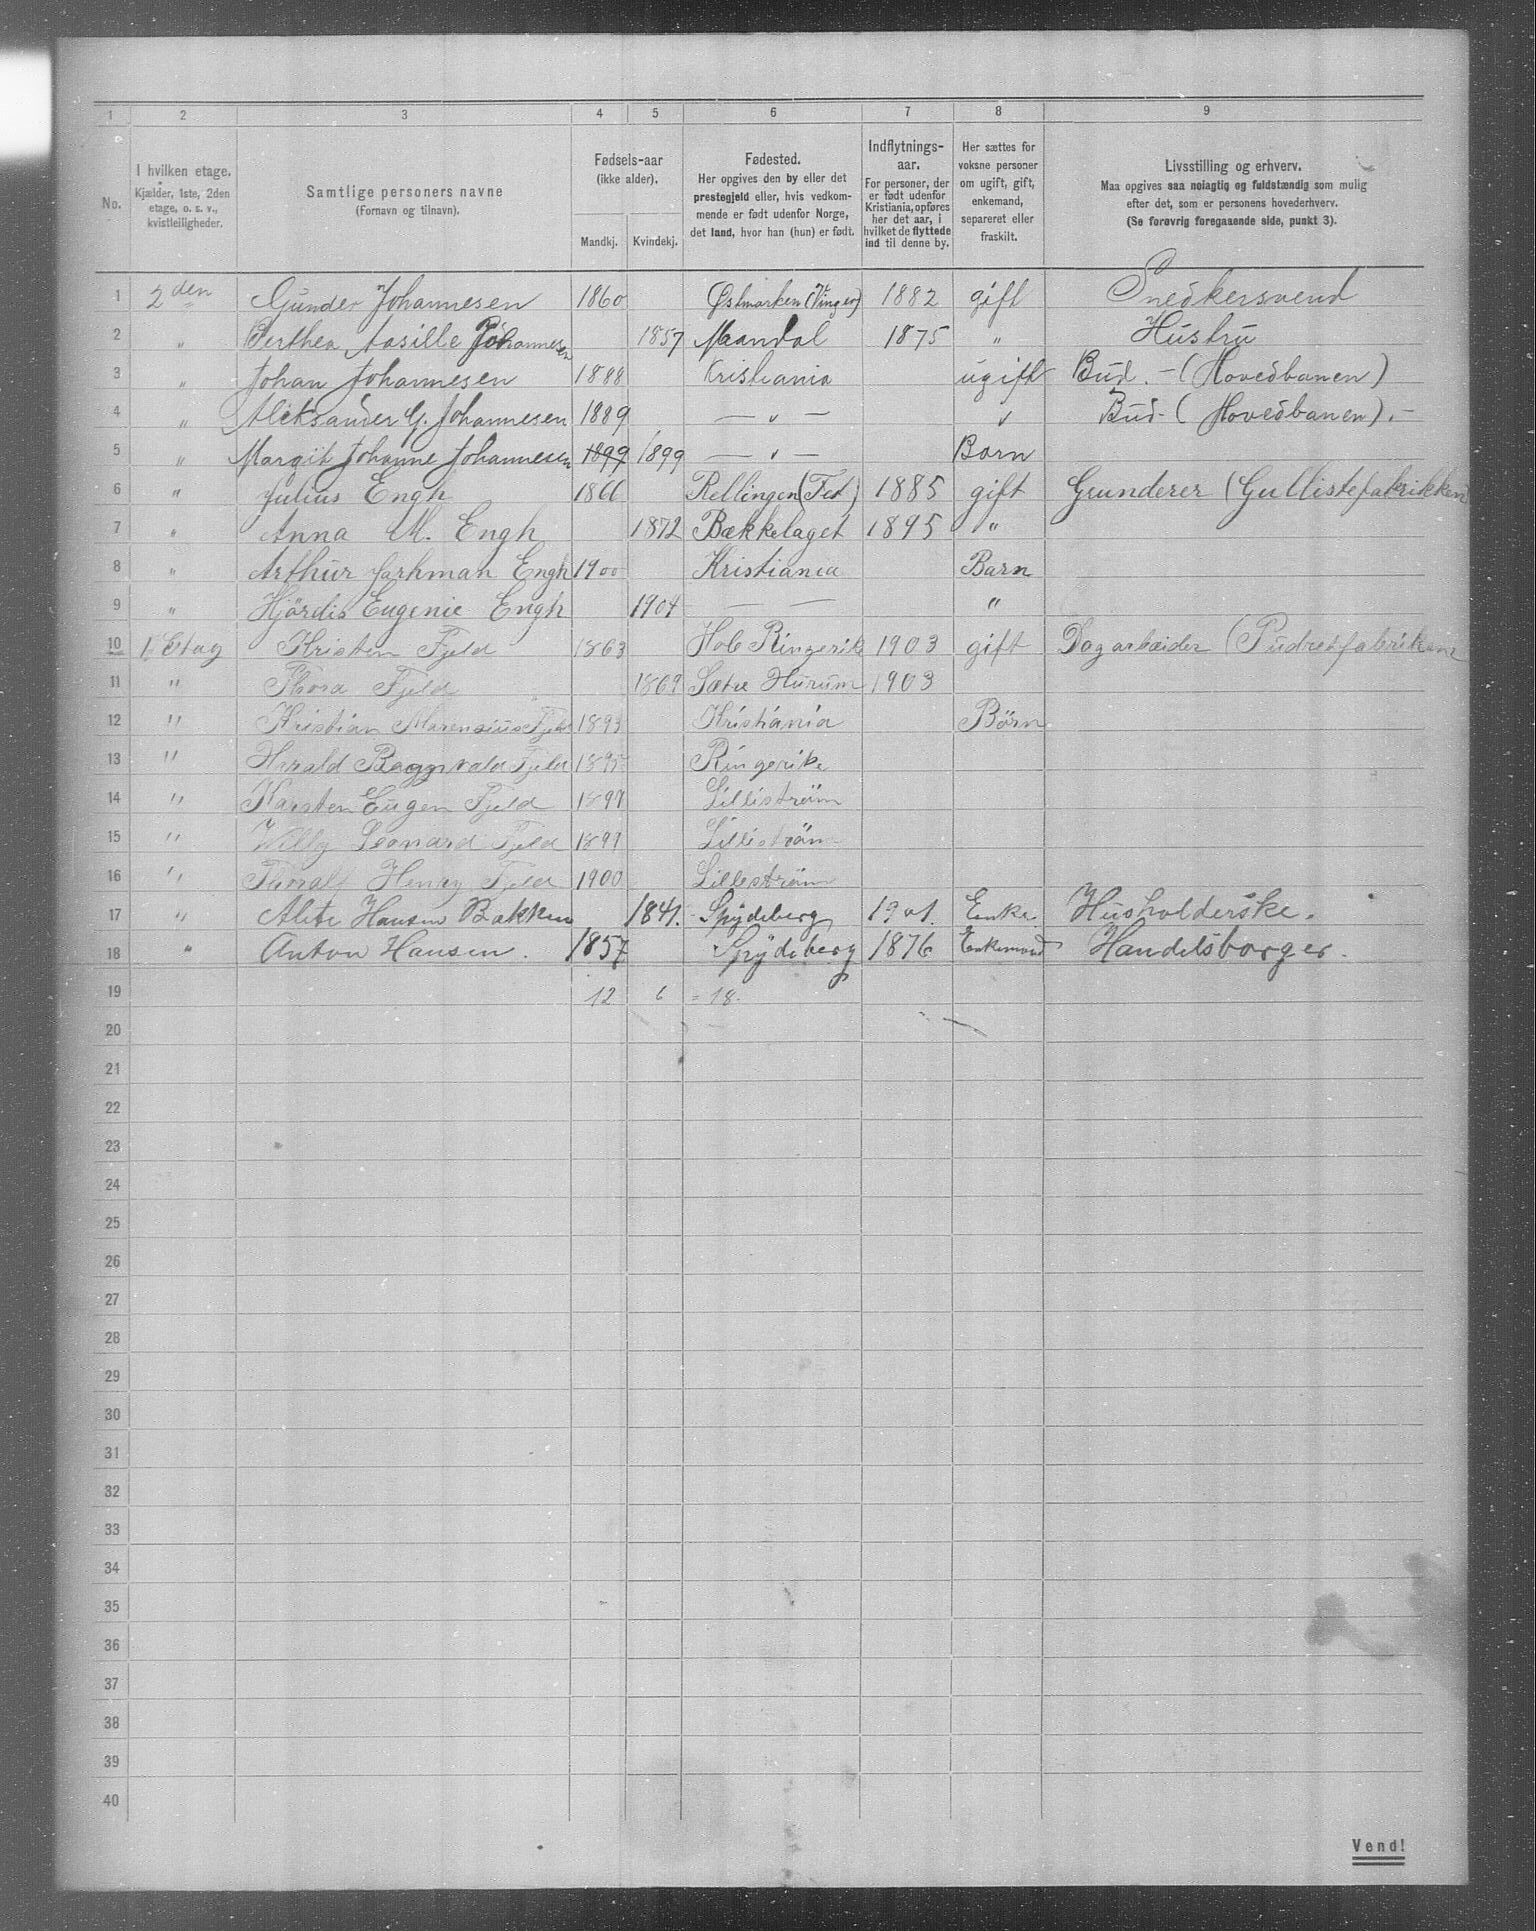 1 2 3 4 5 6 7 8 9
No.
I hvilken etage.
Kjælder, 1ste, 2den
etage, o. s. v.,
kvistleiligheder.
Samtlige personers navne
(Fornavn og tilnavn).
Fødsels-aar
(ikke alder).
Mandkj. Kvindekj.
Fødested.
Her opgives den by eller det
prestegjeld eller, hvis vedkom-
mende er født udenfor Norge,
det land, hvor han (hun) er født.
Indflytnings-
aar.
For personer, der
er født udenfor
Kristiania, opføres
her det aar, i
hvilket de flyttede
ind til denne by.
Her sættes for
voksne personer
om ugift, gift,
enkemand,
separeret eller
fraskilt.
Livsstilling og erhverv.
Maa opgives saa nøiagtig og fuldstændig som mulig
efter det, som er personens hovederhverv.
(Se forøvrig foregaaende side, punkt 3).
1 2den Gunder Johannesen 1860 Østmarken (Vinger) 1882 gift Snedkersvend
2 " Berthea Aasille Johannesen 1857 Mandal 1875 " Hustru
3 " Johan Johannesen 1888 Kristiania ugift Bud. - (Hovedbanen)
4 " Aleksander G. Johannesen 1889 — " — " Bud - (Hovedbanen). -
5 " Margit Johanne Johannesen 1899 1899 — " — Barn
6 " Julius Engh 1866 Rellingen (Fet) 1885 gift Grunderer (Gullistefabrikken)
7 " Anna M. Engh 1872 Bækkelaget 1895 "
8 " Arthur Engh 1900 Kristiania Barn
9 " Hjördis Eugenie Engh 1904 — — "
10 1. Etag Kristen Fjeld 1863 Hole Ringerike 1903 gift Dagarbeider (Pudretfabrikene
11 " Thora Fjeld 1869 Sætre Hurum 1903
12 " Kristian Marensius Fjeld 1893 Kristiania Börn
13 " Harald Fjeld 1895 Ringerike
14 " Karsten Eugen Fjeld 1897 Lilliström
15 " Willy Leonard Fjeld 1899 Lilliström
16 " Thoralf Henry Fjeld 1900 Lilleström
17 " Alete Hansen Bakken 1841. Spydeberg 1901. Enke Husholderske.
18 " Anton Hansen. 1857 Spydeberg 1876 Enkemand Handelsborger.
19 12 6 = 18.
20
21
22
23
24
25
26
27
28
29
30
31
32
33
34
35
36
37
38
39
40
Vend!